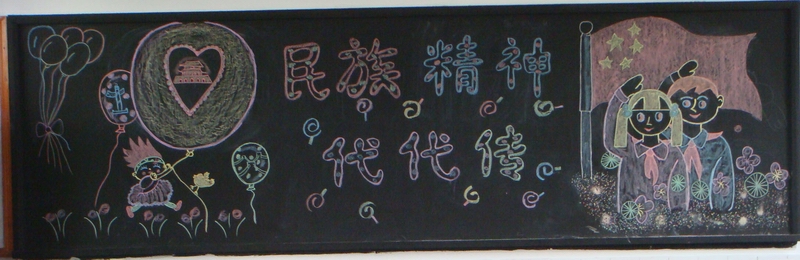 民族精神
代代传